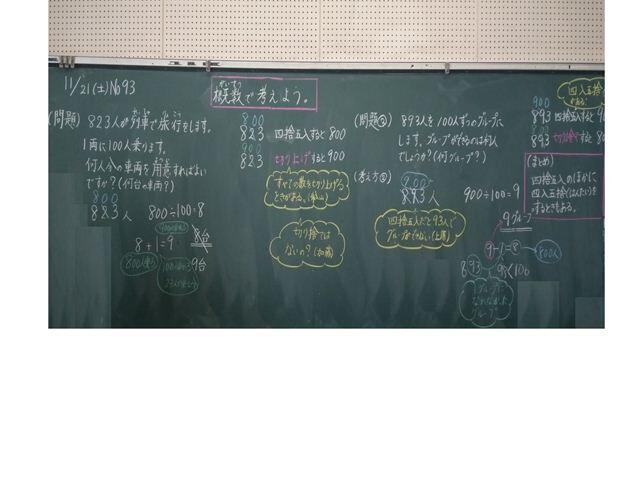 11/21(土)No93
概数で考えよう。
(問題) 823人が列車で旅行をします。
1両に100人乗ります。
何人分の車両を用意すればよい
ですか?(何台の車両?)
800
823人
800÷100=8
8台
8+1=9
9台
800
823 四捨五入すると 800
900
823 切り上げすると900
すべての数を切り上げる
ときがある。
切り捨ては
ないの?(加藤)
(問題②) 893人を100人ずつのグループに
します。グループができるのは何人
でしょうか?(何グループ?)
(考え方②)
900
893人
900÷100=9
9グループ
四捨五入だと93人で
9-1=8
800人
893
93<100
グループに
なれなかった
グループ
四入五捨が
ある!
900
893 四捨五入すると
893 切り捨てすると
(まとめ)
四捨五入のほかに
四入五捨(はんたい)を
するときもある。